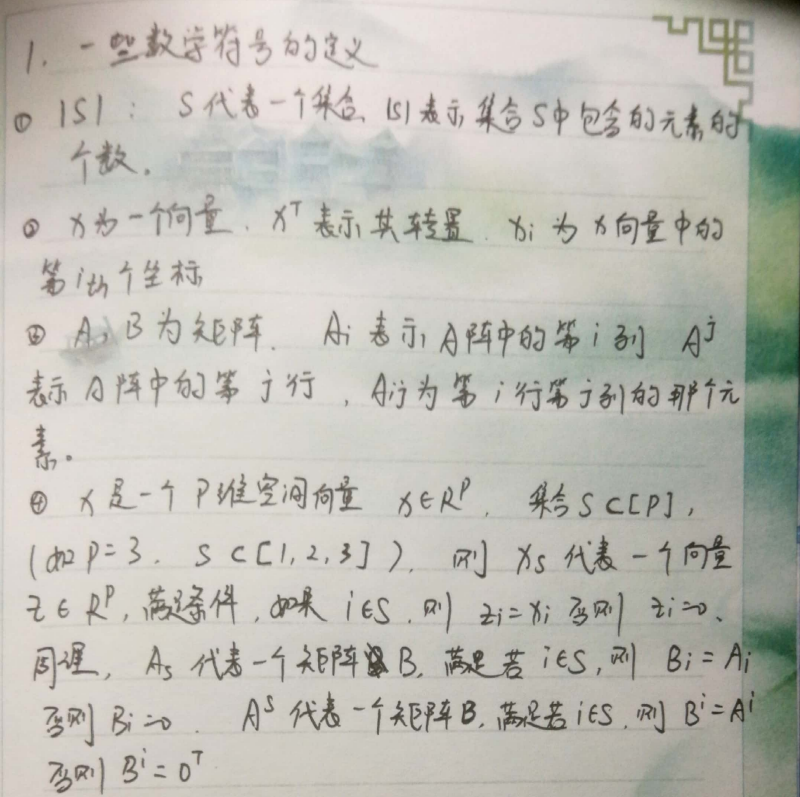 1. 一些数学符号的定义
① |S| : S代表一个集合, |S|表示集合S中包含的元素的
个数。
② x为一个向量, xᵀ表示其转置. xi为x向量中的
第ith个坐标
③ A, B为矩阵. Ai表示A阵中的第i列 Aʲ
表示A阵中的第j行, Aij为第i行第j列的那个元
素。
④ x是一个P维空间向量 x∈Rᴾ. 集合S⊂[P],
(如P=3. S⊂[1,2,3]). 则xs代表一个向量
z∈Rᴾ, 满足条件, 如果i∈S, 则zi=xi否则zi=0.
同理, As代表一个矩阵B, 满足若i∈S, 则Bi=Ai
否则Bi=0. Aˢ代表一个矩阵B, 满足若i∈S. 则Bⁱ=Aⁱ
否则Bⁱ=0ᵀ